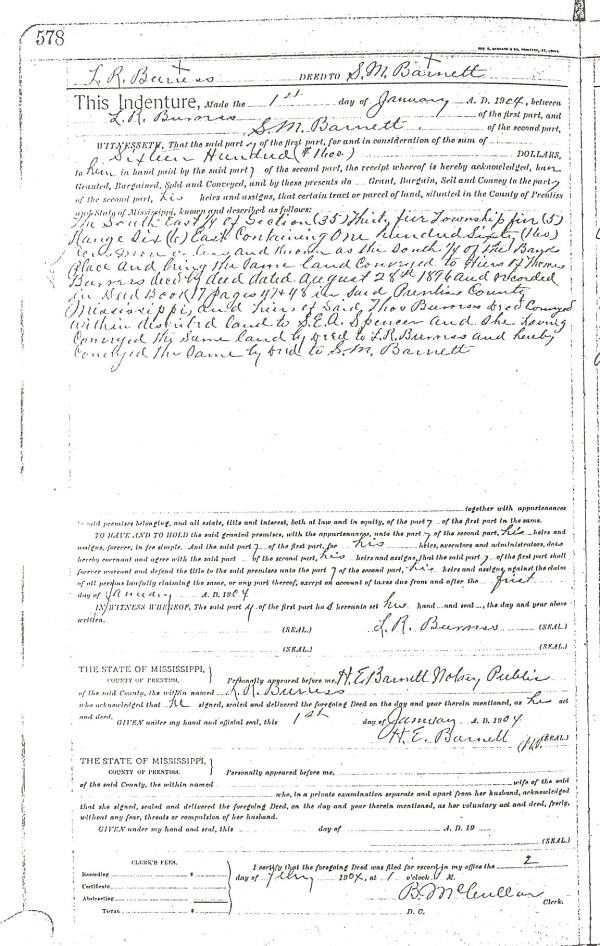 578
L. R. Burress DEED TO S. M. Barnett
This Indenture, Made the 1st day of January A. D. 1904, between
L. R. Burress of the first part, and
S. M. Barnett of the second part,
WITNESSETH, That the said party of the first part, for and in consideration of the sum of
Sixteen Hundred ($1600.) DOLLARS,
to him in hand paid by the said party of the second part, the receipt whereof is hereby acknowledged, have
Granted, Bargained, Sold and Conveyed, and by these presents do Grant, Bargain, Sell and Convey to the party
of the second part, his heirs and assigns, that certain tract or parcel of land, situated in the County of Prentiss
and State of Mississippi, known and described as follows:
The South East 1/4 of Section (35) Thirty five Township five (5)
Range Six (6) East Containing One hundred Sixty (160)
and Known as the South 1/2 of the
Place And being the Same land Conveyed to Hiers of Thomas
Burress dec'd by deed dated August 28th 1896 and recorded
in Deed Book 17 pages 47+48 in Said Prentiss County
Mississippi and hiers of Said Thos Burress Dec'd Conveyed
within described land to S. E. A. Spencer and She having
Conveyed the Same land by Deed to L. R. Burress and hereby
Conveyed the Same by Deed to S. M. Barnett
together with appurtenances
to said premises belonging, and all estate, title and interest, both at law and in equity, of the party of the first part in the same.
TO HAVE AND TO HOLD the said granted premises, with the appurtenances, unto the party of the second part, his heirs and
assigns, forever, in fee simple. And the said party of the first part, for his heirs, executors and administrators, does
hereby covenant and agree with the said part of the second part, his heirs and assigns, that the said party of the first part shall
forever warrant and defend the title to the said premises unto the party of the second part, his heirs and assigns, against the claim
of all persons lawfully claiming the same, or any part thereof, except on account of taxes due from and after the first
day of January A. D. 1904
IN WITNESS WHEREOF, The said party of the first part has hereunto set his hand and seal, the day and year above
written.
(SEAL.) L. R. Burress (SEAL)
(SEAL.) (SEAL)
THE STATE OF MISSISSIPPI,
COUNTY OF PRENTISS. Personally appeared before me, H. E. Barnett Notary Public
of the said County, the within named L. R. Burress
who acknowledged that he signed, sealed and delivered the foregoing Deed on the day and year therein mentioned, as his act
and deed.
GIVEN under my hand and official seal, this 1st day of January A. D. 1904
H. E. Barnett (SEAL)
THE STATE OF MISSISSIPPI,
COUNTY OF PRENTISS. Personally appeared before me,
of the said County, the within named wife of the said
who, in a private examination separate and apart from her husband, acknowledged
that she signed, sealed and delivered the foregoing Deed, on the day and year therein mentioned, as her voluntary act and deed, freely,
without any fear, threats or compulsion of her husband.
GIVEN under my hand and seal, this day of A. D. 19
(SEAL.)
CLERK'S FEES.
Recording $
Certificate
Abstracting
TOTAL $
I certify that the foregoing Deed was filed for record in my office the 2
day of Feby 1904, at 1 o'clock M.
B. McCullar Clerk.
D. C.